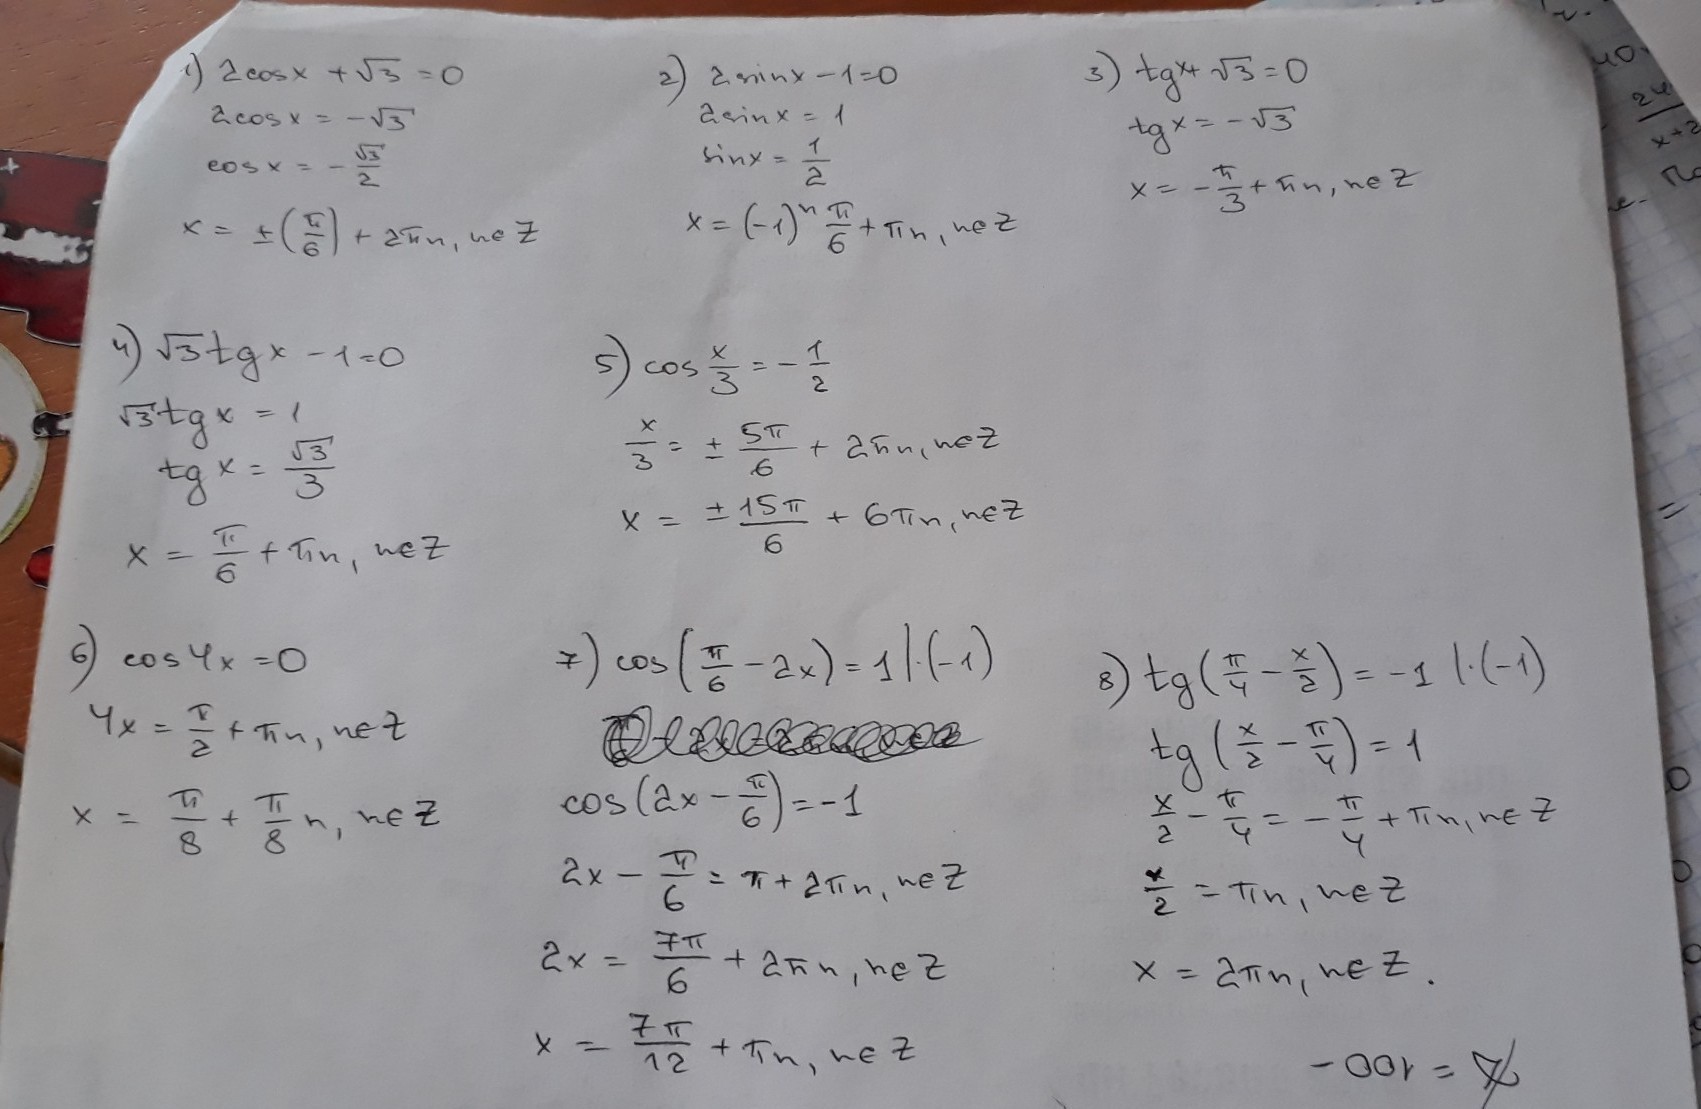 1) 2cosx + √3 = 0
2cosx = -√3
cosx = -√3/2
x = ±(π/6) + 2πn, n∈Z
2) 2sinx - 1 = 0
2sinx = 1
sinx = 1/2
x = (-1)ⁿ π/6 + πn, n∈Z
3) tgx + √3 = 0
tgx = -√3
x = -π/3 + πn, n∈Z
4) √3 tgx - 1 = 0
√3 tgx = 1
tgx = √3/3
x = π/6 + πn, n∈Z
5) cos x/3 = -1/2
x/3 = ± 5π/6 + 2πn, n∈Z
x = ± 15π/6 + 6πn, n∈Z
6) cos4x = 0
4x = π/2 + πn, n∈Z
x = π/8 + π/8 n, n∈Z
7) cos(π/6 - 2x) = 1 |·(-1)
cos(2x - π/6) = -1
2x - π/6 = π + 2πn, n∈Z
2x = 7π/6 + 2πn, n∈Z
x = 7π/12 + πn, n∈Z
8) tg(π/4 - x/2) = -1 |·(-1)
tg(x/2 - π/4) = 1
x/2 - π/4 = -π/4 + πn, n∈Z
x/2 = πn, n∈Z
x = 2πn, n∈Z.
= 100-
24
x+2